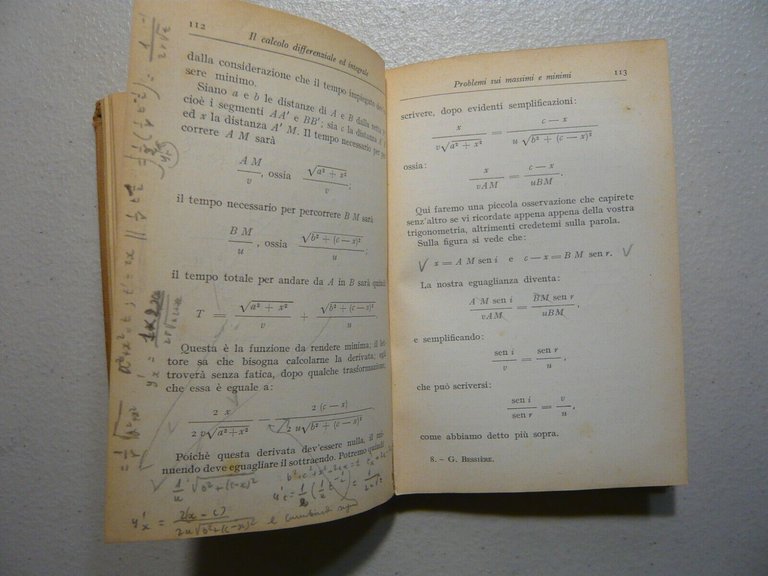 112
Il calcolo differenziale ed integrale
dalla considerazione che il tempo impiegato
sere minimo.
Siano a e b le distanze di A e B dalla
cioè i segmenti AA' e BB'; sia c la distanza A'
ed x la distanza A' M. Il tempo necessario per
correre A M sarà
A M / v , ossia √a² + x² / v ;
il tempo necessario per percorrere B M sarà
B M / u , ossia √b² + (c — x)² / u ;
il tempo totale per andare da A in B sarà quindi
T = √a² + x² / v + √b² + (c — x)² / u
Questa è la funzione da rendere minima; il let-
tore sa che bisogna calcolarne la derivata; egli
troverà senza fatica, dopo qualche trasformazione,
che essa è eguale a:
2 x / 2 v√a² + x² — 2 (c — x) / 2 u√b² + (c — x)²
Poichè questa derivata dev'essere nulla, il mi-
nuendo deve eguagliare il sottraendo. Potremo quindi
1/u √b² + (c-x)²
Problemi sui massimi e minimi
113
scrivere, dopo evidenti semplificazioni:
x / v√a² + x² = c — x / u √b² + (c — x)²
ossia:
x / vAM = c — x / uBM .
Qui faremo una piccola osservazione che capirete
senz'altro se vi ricordate appena appena della vostra
trigonometria, altrimenti credetemi sulla parola.
Sulla figura si vede che:
x = A M sen i e c — x = B M sen r.
La nostra eguaglianza diventa:
A M sen i / vAM = BM sen r / uBM ,
e semplificando:
sen i / v = sen r / u ,
che può scriversi:
sen i / sen r = v / u ,
come abbiamo detto più sopra.
8. - G. BESSIÈRE.